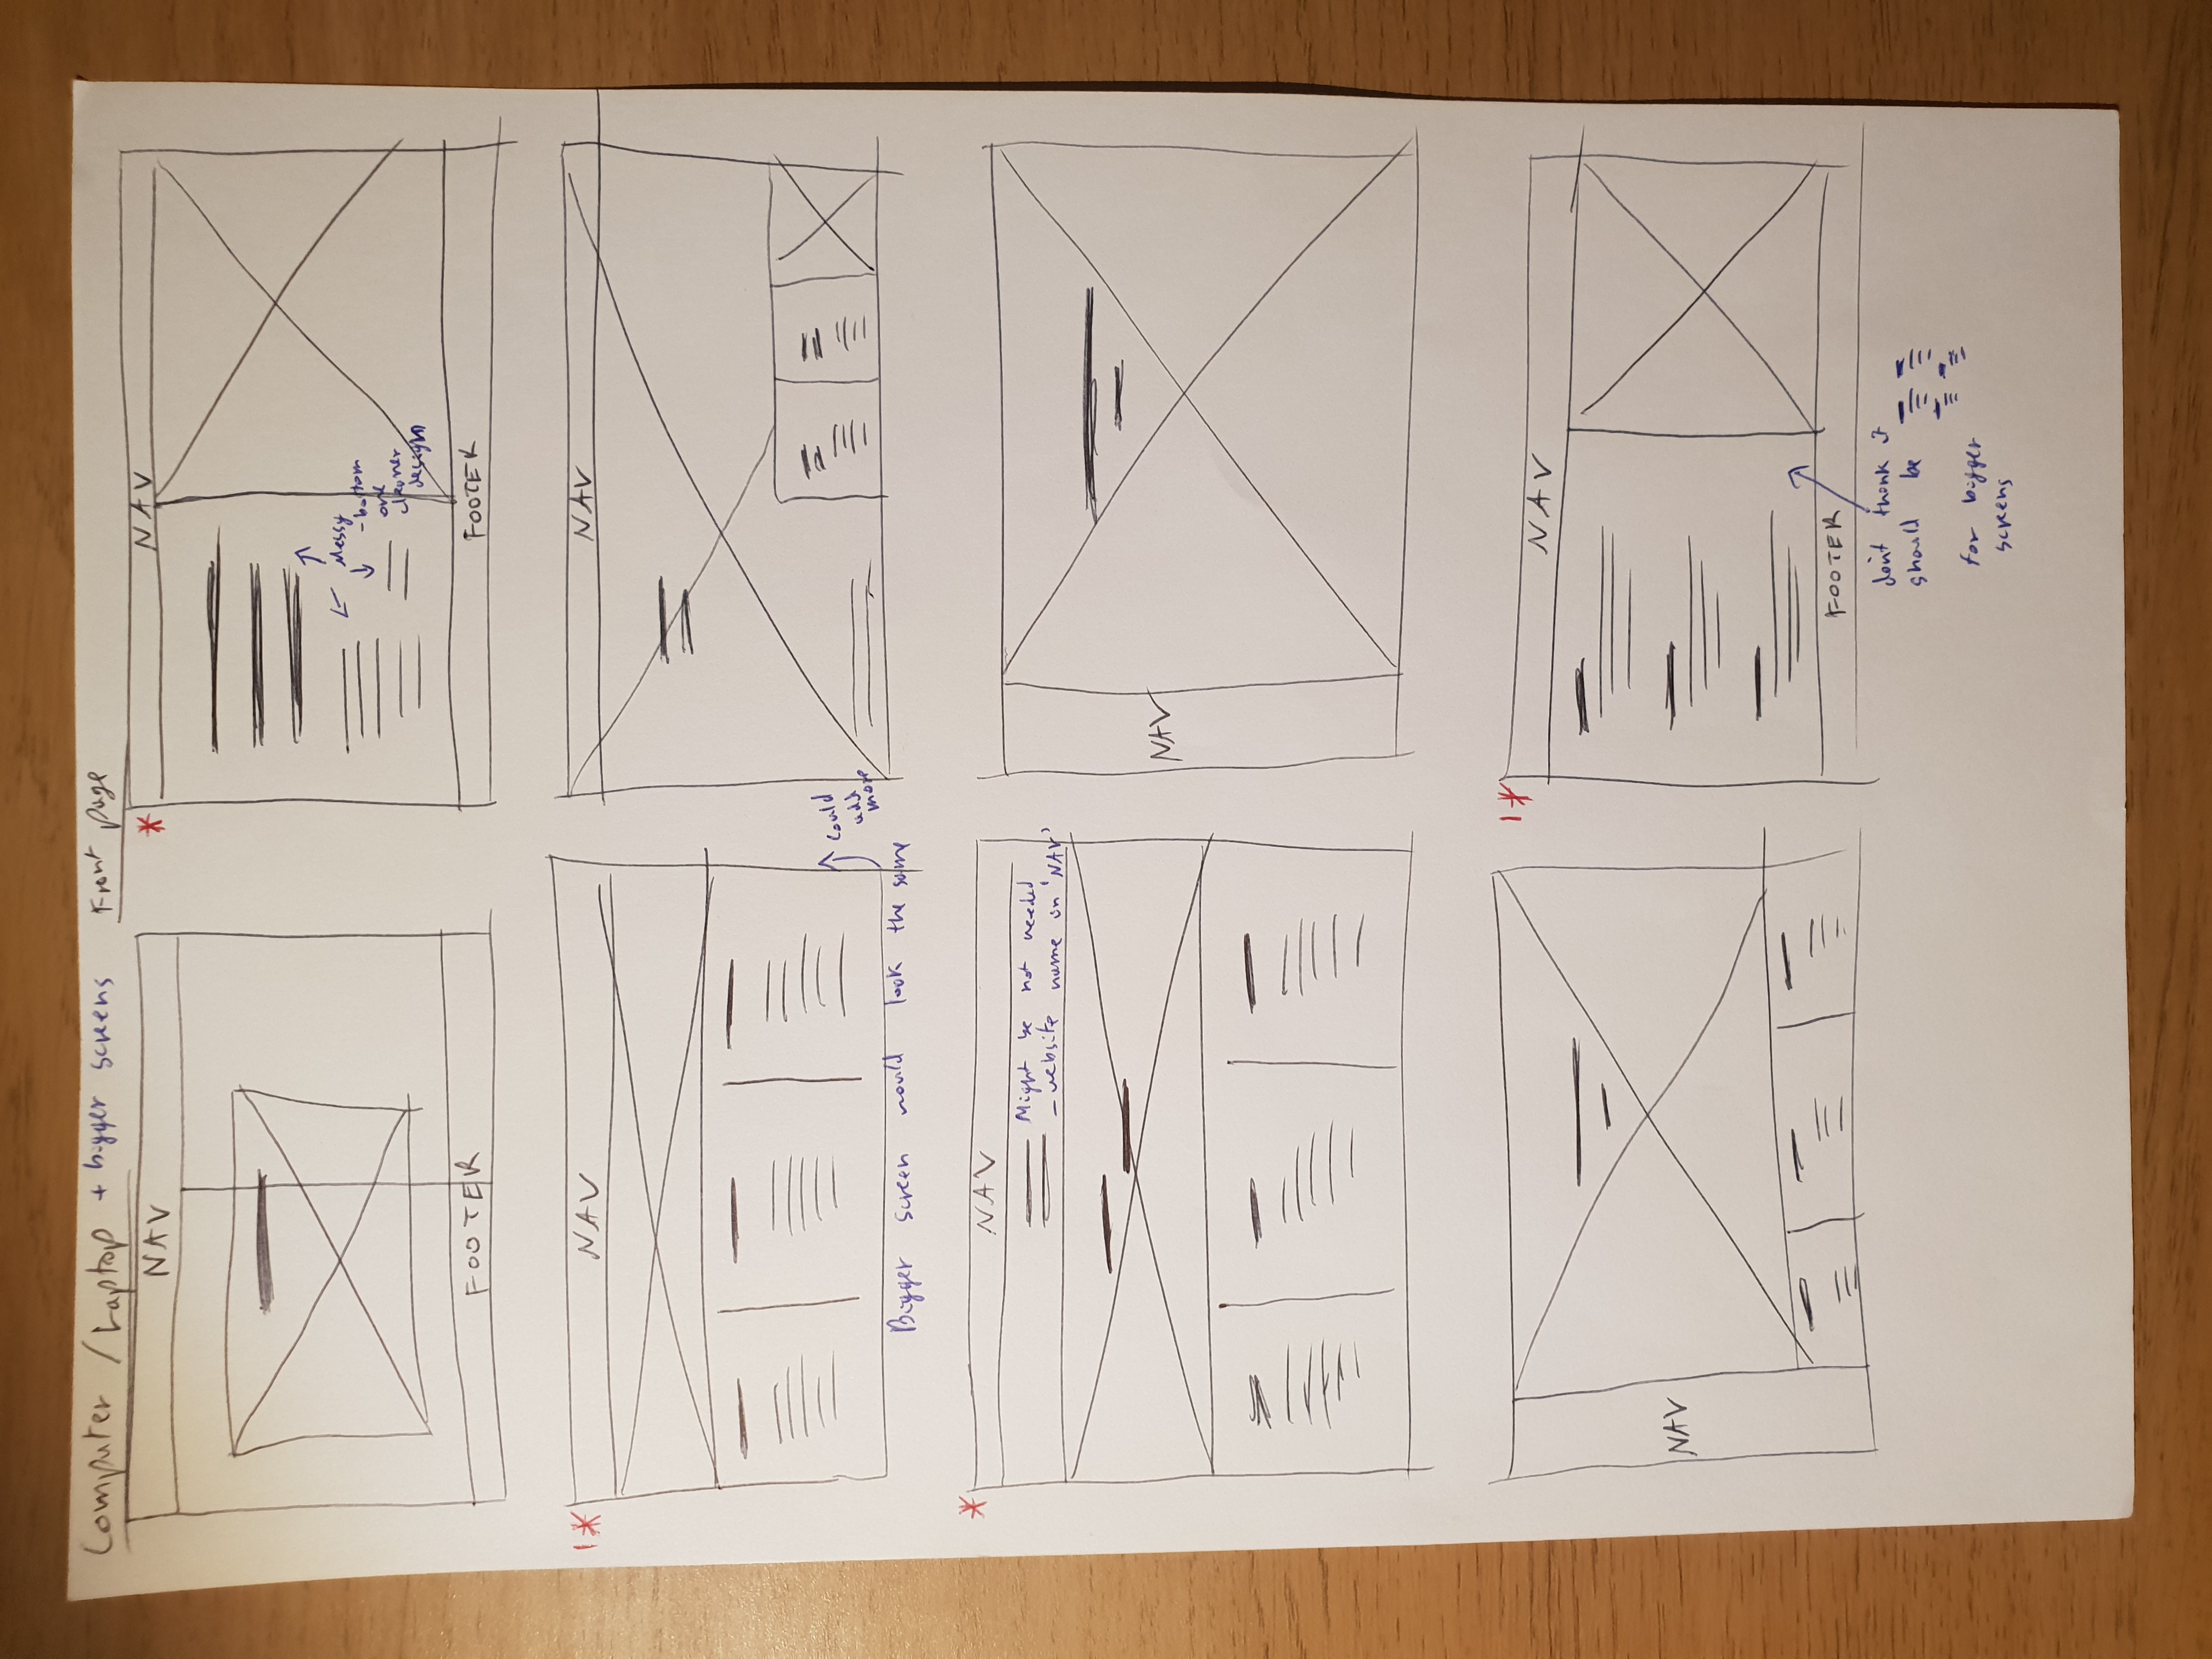 Computer / Laptop + bigger screens Front page
NAV
FOOTER
* NAV
Messy
- bottom
one
cleaner
design
FOOTER
1 * NAV
Could
add
more
Bigger screen would look the same
NAV
* NAV
Might be not needed
- website name in 'NAV'
NAV
NAV
1 * NAV
FOOTER
don't think it
should be
for bigger
screens